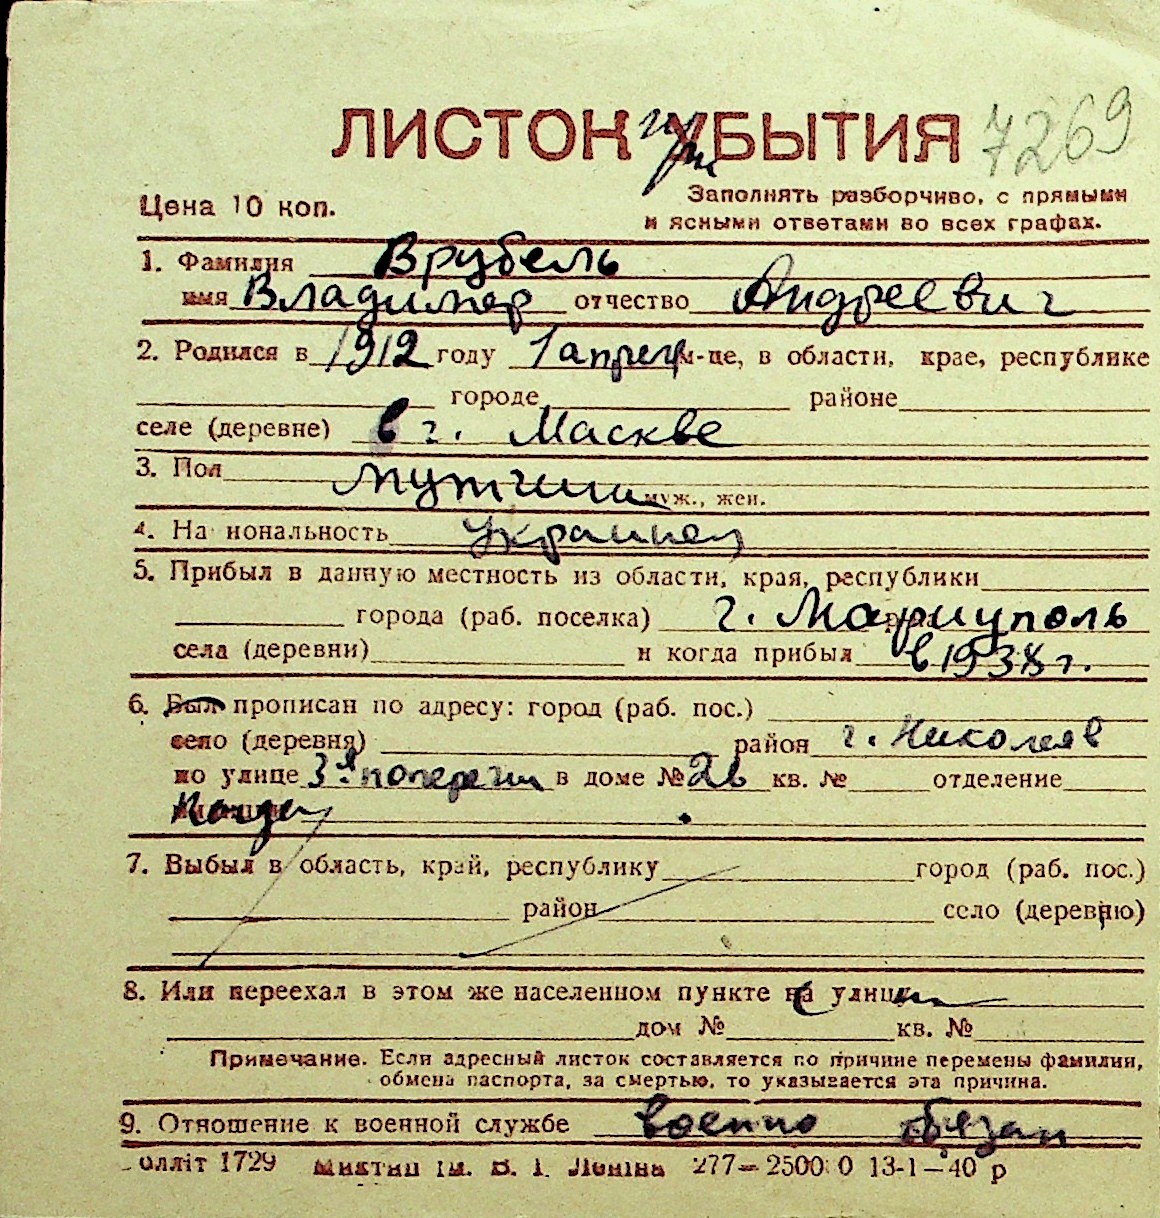 ЛИСТОК УБЫТИЯ 7269
при
Цена 10 коп.
Заполнять разборчиво, с прямыми
и ясными ответами во всех графах.
1. Фамилия Врубель
имя Владимер отчество Андреевич
2. Родился в 1912 году 1 апреля м-це, в области, крае, республике
городе районе
селе (деревне) в г. Маскве
3. Пол мущина муж., жен.
4. На иональность украинец
5. Прибыл в данную местность из области, края, республики
города (раб. поселка) г. Мариуполь
села (деревни) и когда прибыл в 1938 г.
6. Был прописан по адресу: город (раб. пос.)
село (деревня) район г. Николаев
по улице 3я попереч в доме № 2в кв. № отделение
7. Выбыл в область, край, республику город (раб. пос.)
район село (деревню)
8. Или переехал в этом же населенном пункте на улицу
дом № кв. №
Примечание. Если адресный листок составляется по причине перемены фамилии,
обмена паспорта, за смертью, то указывается эта причина.
9. Отношение к военной службе военно обязан
олліт 1729 Миктип ім. В. І. Леніна 277—2500 0 13-1—40 р